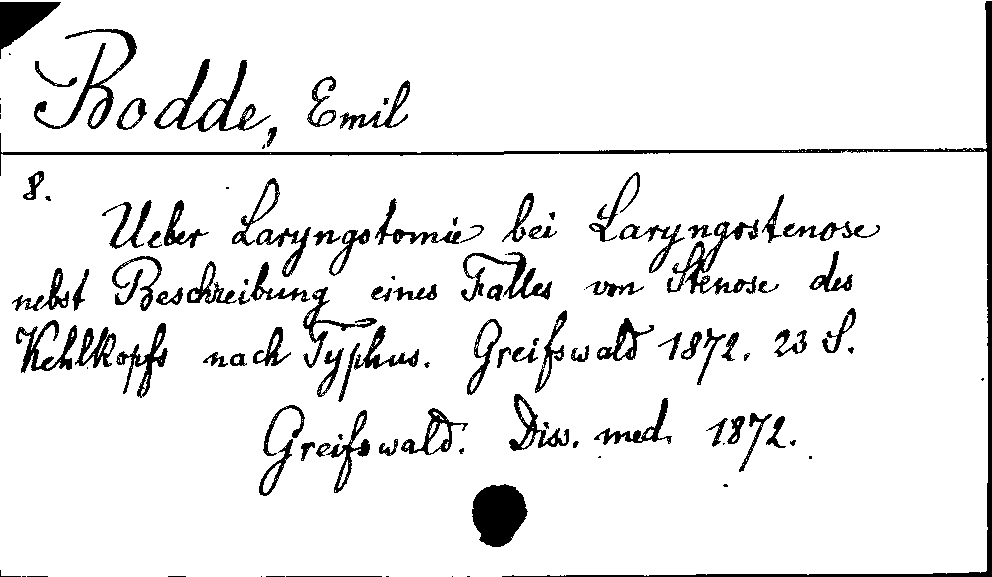 Bodde, Emil
8.
Ueber Laryngotomie bei Laryngostenose
nebst Beschreibung eines Falles von Stenose des
Kehlkopfs nach Typhus. Greifswald 1872. 23 S.
Greifswald. Diss. med. 1872.